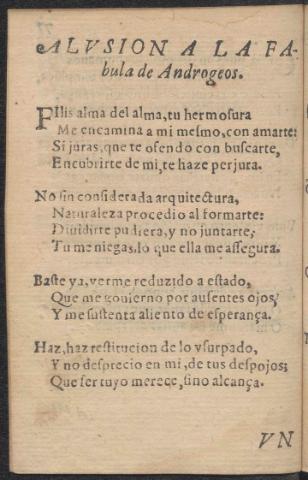 ALVSION A LA FA-
bula de Androgeos.
FIlis alma del alma, tu hermosura
Me encamina a mi mesmo, con amarte:
Si juras, que te ofendo con buscarte,
Encubrirte de mi, te haze perjura.
No sin considerada arquitectura,
Naturaleza procedio al formarte:
Diuidirte pudiera, y no juntarte,
Tu me niegas, lo que ella me assegura.
Baste ya, verme reduzido a estado,
Que me gouierno por ausentes ojos,
Y me sustenta aliento de esperança.
Haz, haz restitucion de lo vsurpado,
Y no desprecio en mi, de tus despojos;
Que ser tuyo merece, sino alcança.
VN